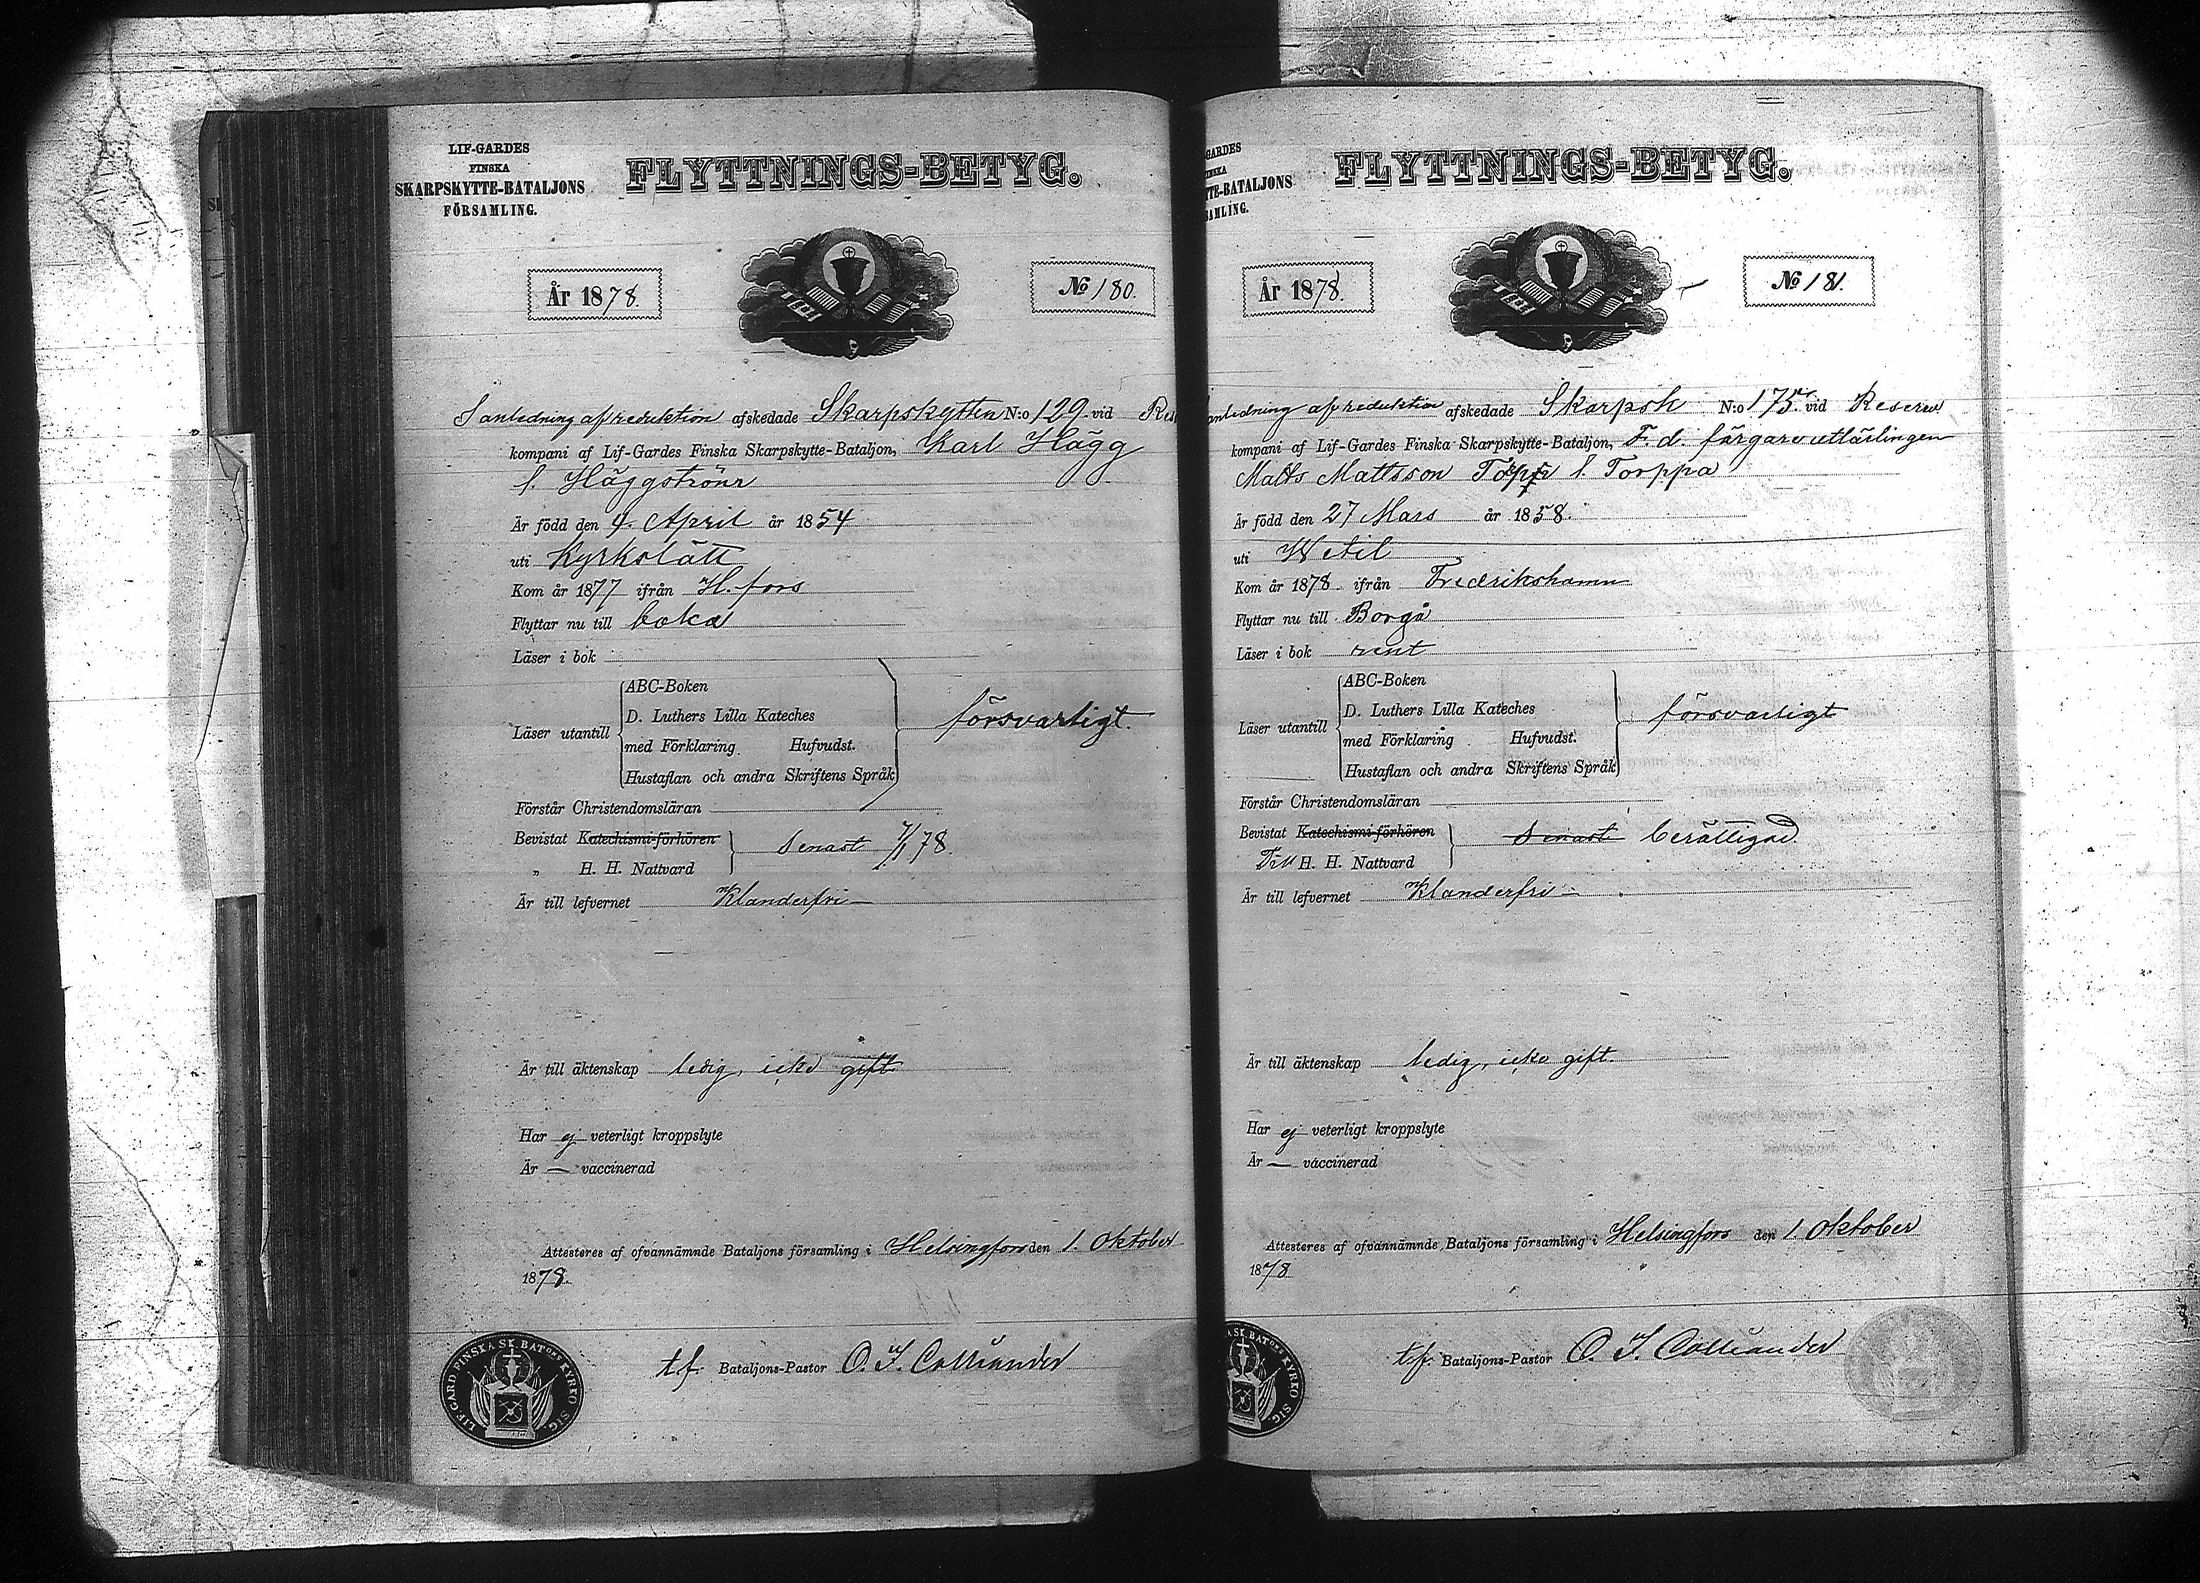 LIF-GARDES
FINSKA
SKARPSKYTTE-BATALJONS
FÖRSAMLING.
FLYTTNINGS-BETYG.
År 1878.
No 180.
I anledning af reduktion afskedade Skarpskytten N:o 129 vid Res
kompani af Lif-Gardes Finska Skarpskytte-Bataljon, Karl Hägg
f. Häggström
Är född den 4. April år 1854
uti Kyrkslätt
Kom år 1877 ifrån H.fors
Flyttar nu till
Läser i bok
ABC-Boken
D. Luthers Lilla Kateches
Läser utantill
med Förklaring Hufvudst.
Hustaflan och andra Skriftens Språk
försvarligt.
Förstår Christendomsläran
Bevistat Katechismi-förhören
„ H. H. Nattvard
senast 7/1 78.
Är till lefvernet Klanderfri —
Är till äktenskap ledig, icke gift.
Har ej veterligt kroppslyte
Är — vaccinerad
Attesteres af ofvannämnde Bataljons församling i Helsingfors den 1. Oktober
1878.
LIF.GARD.FINSKA SK.BATONS KYRKO SIG.
t.f. Bataljons-Pastor O. I. Colliander
GARDES
INSKA
TTE-BATALJONS
SAMLING.
FLYTTNINGS-BETYG.
År 1878.
No 181.
anledning af reduktion afskedade Skarpsk N:o 175. vid Reserv
kompani af Lif-Gardes Finska Skarpskytte-Bataljon, F. d. färgareutlärlingen
Matts Mattsson f. Torppa
Är född den 27 Mars år 1858.
uti Wetil
Kom år 1878 ifrån Fredrikshamn
Flyttar nu till Borgå
Läser i bok rent
ABC-Boken
D. Luthers Lilla Kateches
Läser utantill
med Förklaring Hufvudst.
Hustaflan och andra Skriftens Språk
försvarligt
Förstår Christendomsläran
Bevistat Katechismi-förhören
Till H. H. Nattvard
Senast berättigad.
Är till lefvernet Klanderfri —
Är till äktenskap ledig, icke gift.
Har ej veterligt kroppslyte
Är — vaccinerad
Attesteres af ofvannämnde Bataljons församling i Helsingfors den 1. Oktober
1878
A SK.BATONS KYRKO SIG.
t.f. Bataljons-Pastor O. I. Colliander